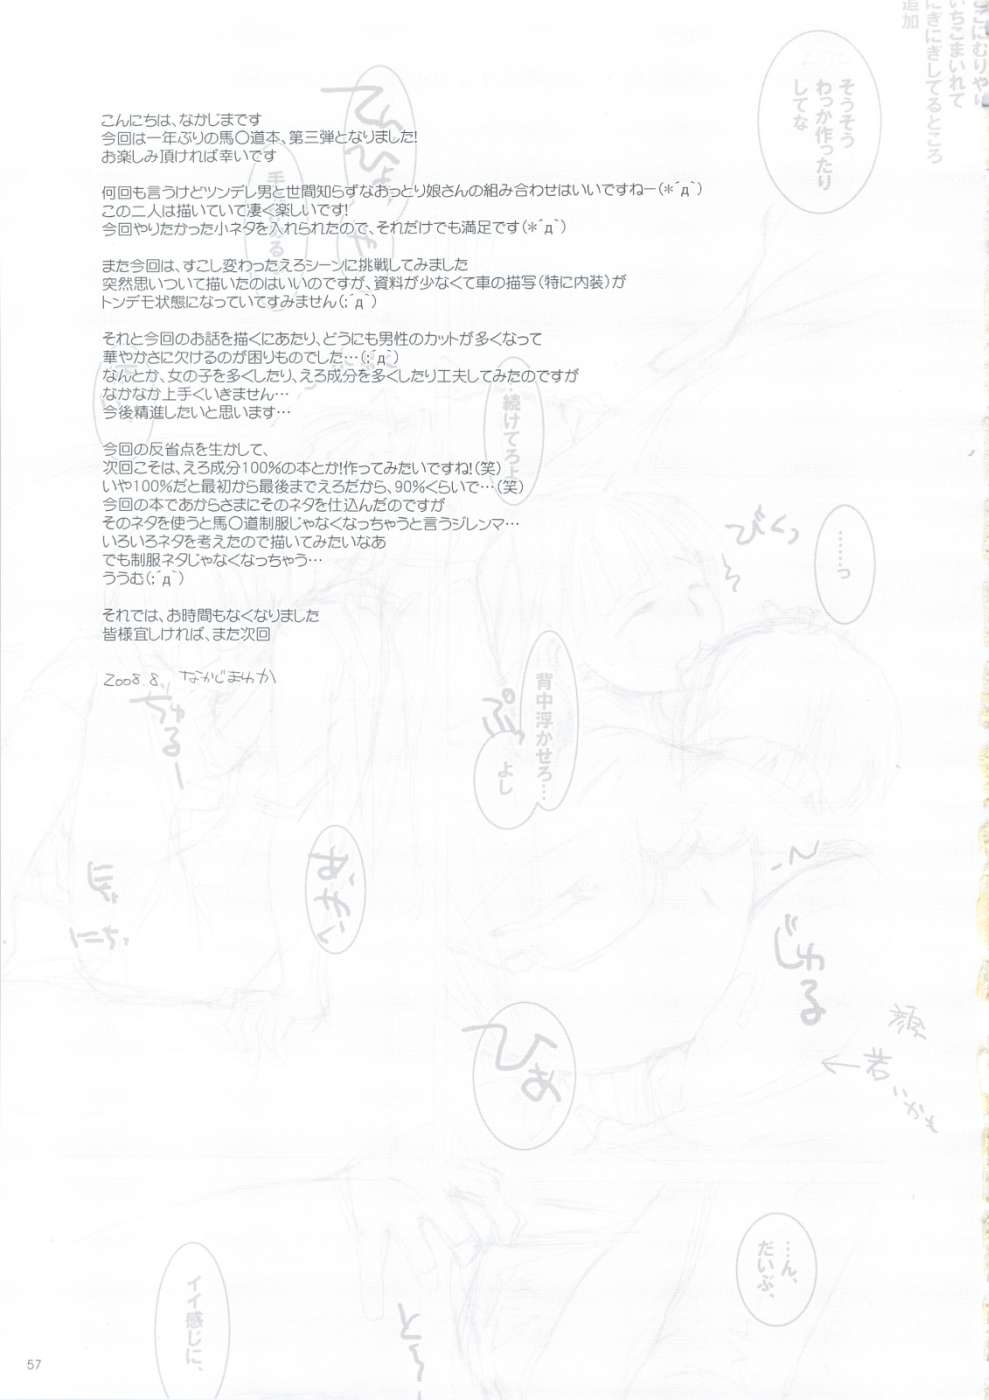 こんにちは、なかじまです
今回は一年ぶりの馬〇道本、第三弾となりました!
お楽しみ頂ければ幸いです
何回も言うけどツンデレ男と世間知らずなおっとり娘さんの組み合わせはいいですねー(＊´д｀)
この二人は描いていて凄く楽しいです!
今回やりたかった小ネタを入れられたので、それだけでも満足です(＊´д｀)
また今回は、すこし変わったえろシーンに挑戦してみました
突然思いついて描いたのはいいのですが、資料が少なくて車の描写(特に内装)が
トンデモ状態になっていてすみません(;´д｀)
それと今回のお話を描くにあたり、どうにも男性のカットが多くなって
華やかさに欠けるのが困りものでした…(;´д｀)
なんとか、女の子を多くしたり、えろ成分を多くしたり工夫してみたのですが
なかなか上手くいきません…
今後精進したいと思います…
今回の反省点を生かして、
次回こそは、えろ成分100%の本とか!作ってみたいですね!(笑)
いや100%だと最初から最後までえろだから、90%くらいで…(笑)
今回の本であからさまにそのネタを仕込んだのですが
そのネタを使うと馬〇道制服じゃなくなっちゃうと言うジレンマ…
いろいろネタを考えたので描いてみたいなあ
でも制服ネタじゃなくなっちゃう…
ううむ(;´д｀)
それでは、お時間もなくなりました
皆様宜しければ、また次回
2008.8. なかじまゆか
ここにむりやり
いちこまいれて
にぎにぎしてるところ
追加
そうそう
わっか作ったり
してな
…続けてろよ
びくっ
……っ
背中浮かせろ…
よし
ちゅるー
じゅる
顔
若
いかも
ひぁ
…ん、
だいぶ、
イイ感じに、
と～
57